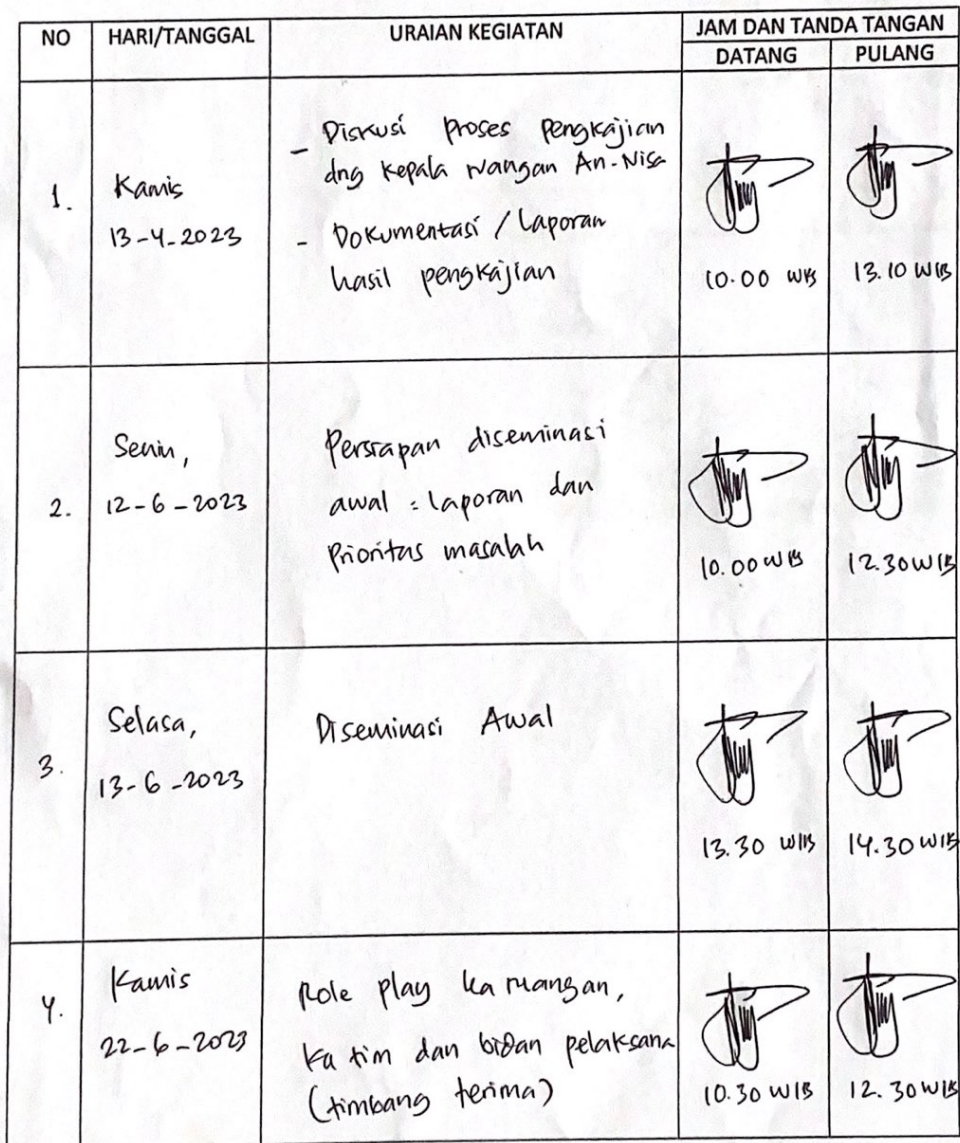 NO HARI/TANGGAL URAIAN KEGIATAN JAM DAN TANDA TANGAN
DATANG PULANG
1. Kamis
13-4-2023
- Diskusi proses pengkajian
dng kepala ruangan An-Nisa
- Dokumentasi / Laporan
hasil pengkajian
10.00 WIB 13.10 WIB
2. Senin,
12-6-2023
Persiapan diseminasi
awal : laporan dan
Prioritas masalah
10.00 WIB 12.30 WIB
3. Selasa,
13-6-2023
Diseminasi Awal
13.30 WIB 14.30 WIB
4. Kamis
22-6-2023
Role play ka ruangan,
ka tim dan bidan pelaksana
(timbang terima)
10.30 WIB 12.30 WIB